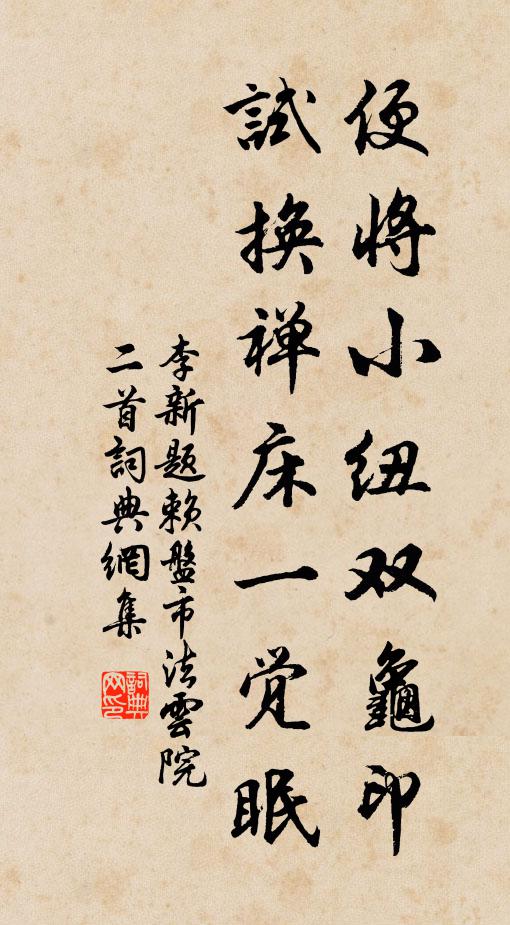 便将小纽双龜印
試换禅床一觉眠
李新题赖盤市法雲院
二首詞典網集
詞典
网印